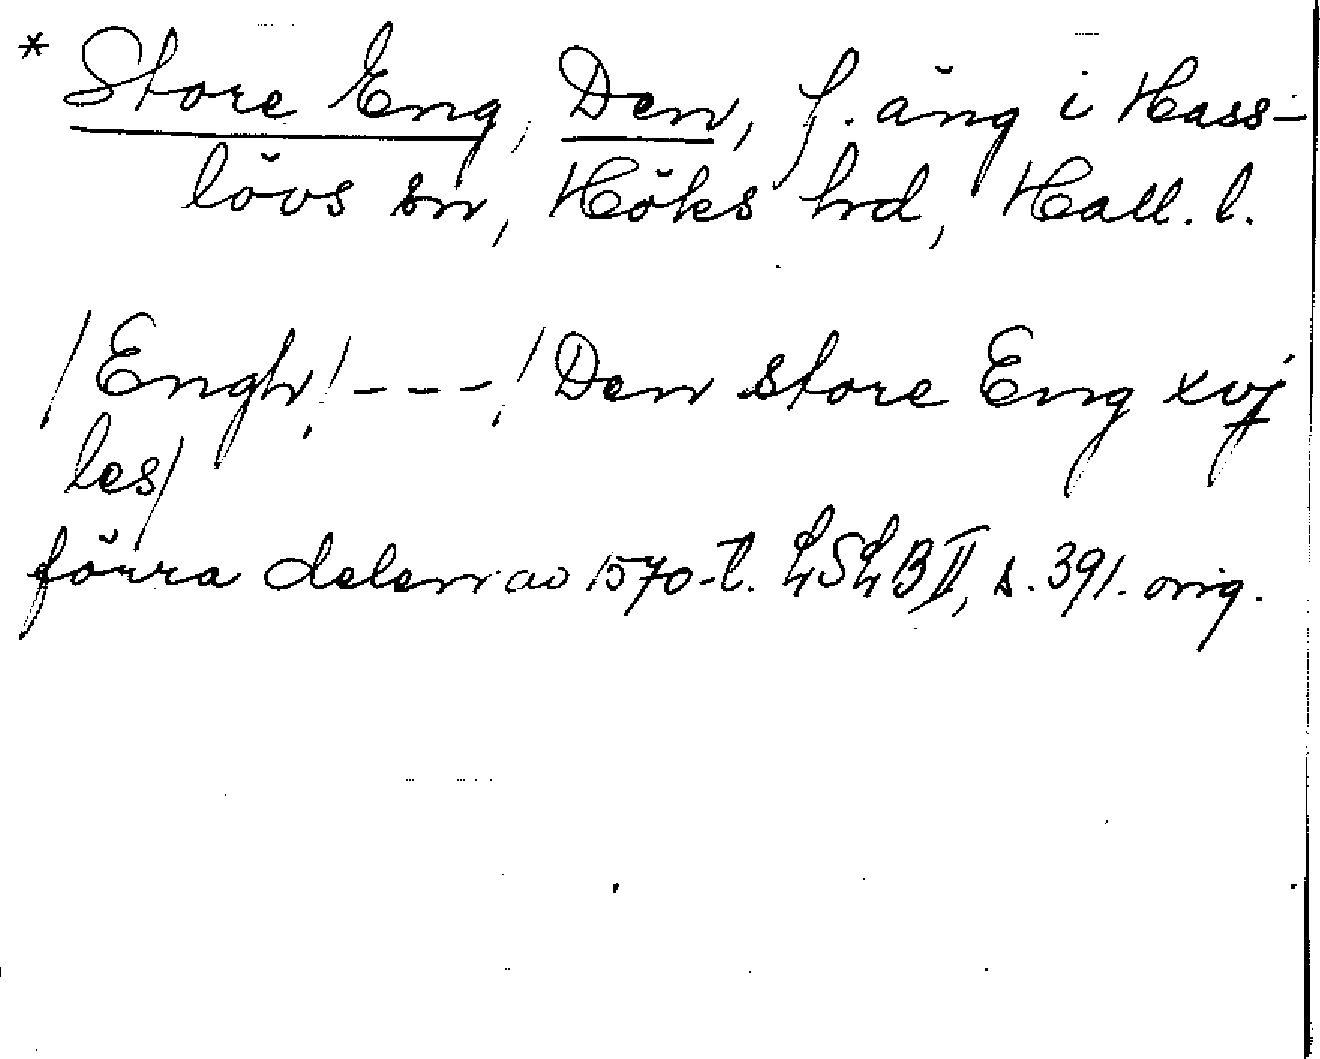 * Store Eng, Den, f. äng i Hass-
lövs sn, Höks hrd, Hall. l.
/Engh/---/Den store Eng xvj
les/
förra delen av 1570-t. LSLB II, s. 391. orig.